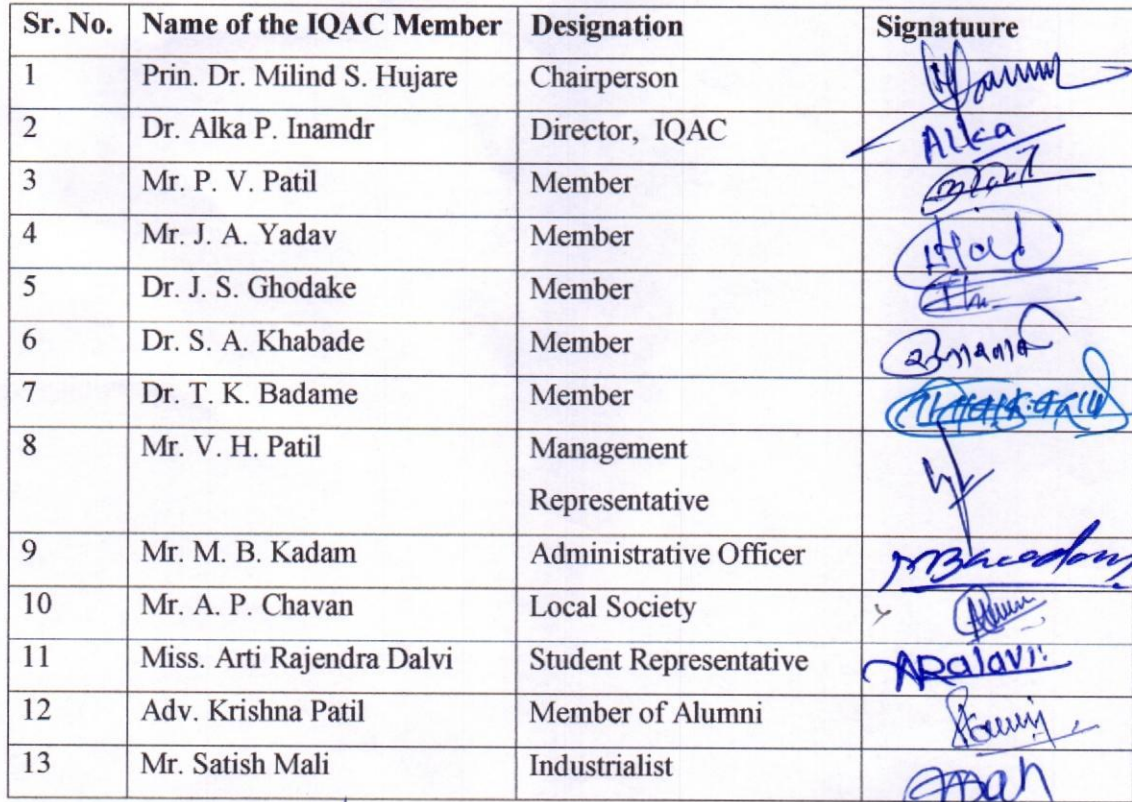 Sr. No. Name of the IQAC Member Designation Signatuure
1 Prin. Dr. Milind S. Hujare Chairperson
2 Dr. Alka P. Inamdr Director, IQAC Alka
3 Mr. P. V. Patil Member
4 Mr. J. A. Yadav Member
5 Dr. J. S. Ghodake Member
6 Dr. S. A. Khabade Member
7 Dr. T. K. Badame Member
8 Mr. V. H. Patil Management
Representative
9 Mr. M. B. Kadam Administrative Officer
10 Mr. A. P. Chavan Local Society
11 Miss. Arti Rajendra Dalvi Student Representative ARdalavi
12 Adv. Krishna Patil Member of Alumni
13 Mr. Satish Mali Industrialist